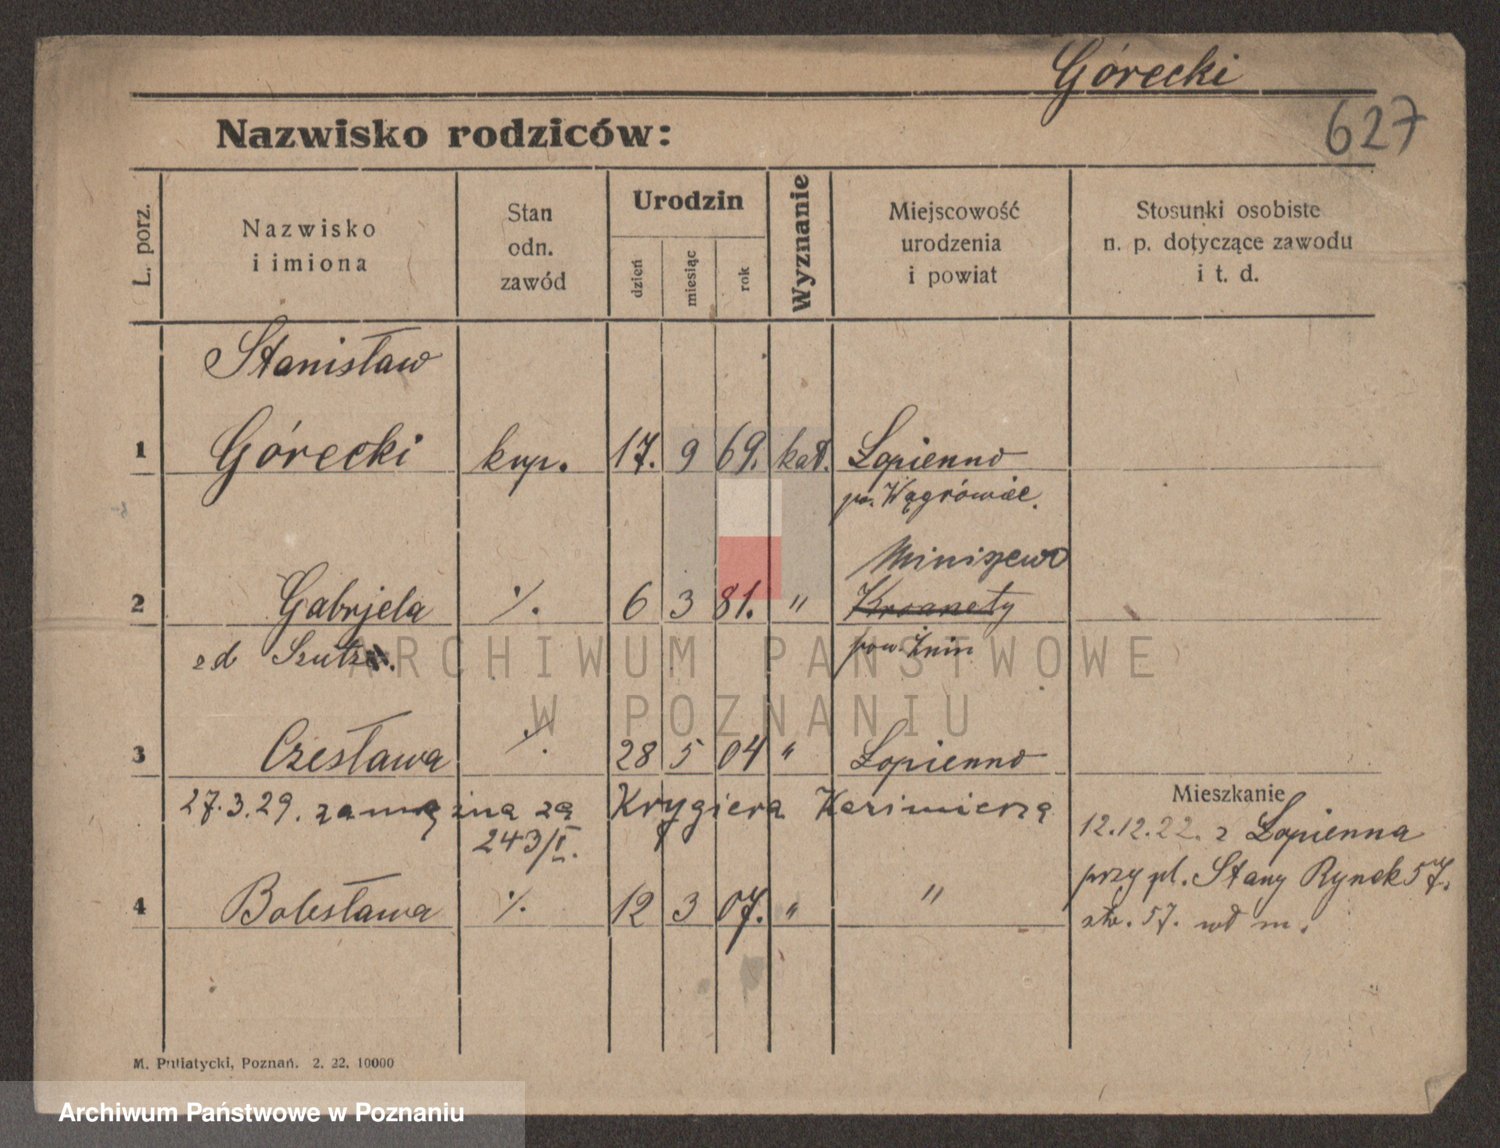 Górecki
627
Nazwisko rodziców:
L. porz.
Nazwisko
i imiona
Stan
odn.
zawód
Urodzin
dzień
miesiąc
rok
Wyznanie
Miejscowość
urodzenia
i powiat
Stosunki osobiste
n. p. dotyczące zawodu
i t. d.
Stanisław
1 Górecki kup. 17. 9 69. kat. Łopienno
pow. Wągrowiec.
Miniszewo
2 Gabrjela ·/. 6 3 81. "
zd pow. Żnin
ARCHIWUM PAŃSTWOWE
W POZNANIU
3 Czesława ·/. 28 5 04 " Łopienno
27.3.29. zamężna za Krygiera Kazimierza
243/I.
Mieszkanie
12.12.22. z Łopienna
przy pl. Stary Rynek 57.
4 Bolesława ·/. 12 3 07. " "
57. wł m.
M. Putiatycki, Poznań. 2. 22. 10000
Archiwum Państwowe w Poznaniu